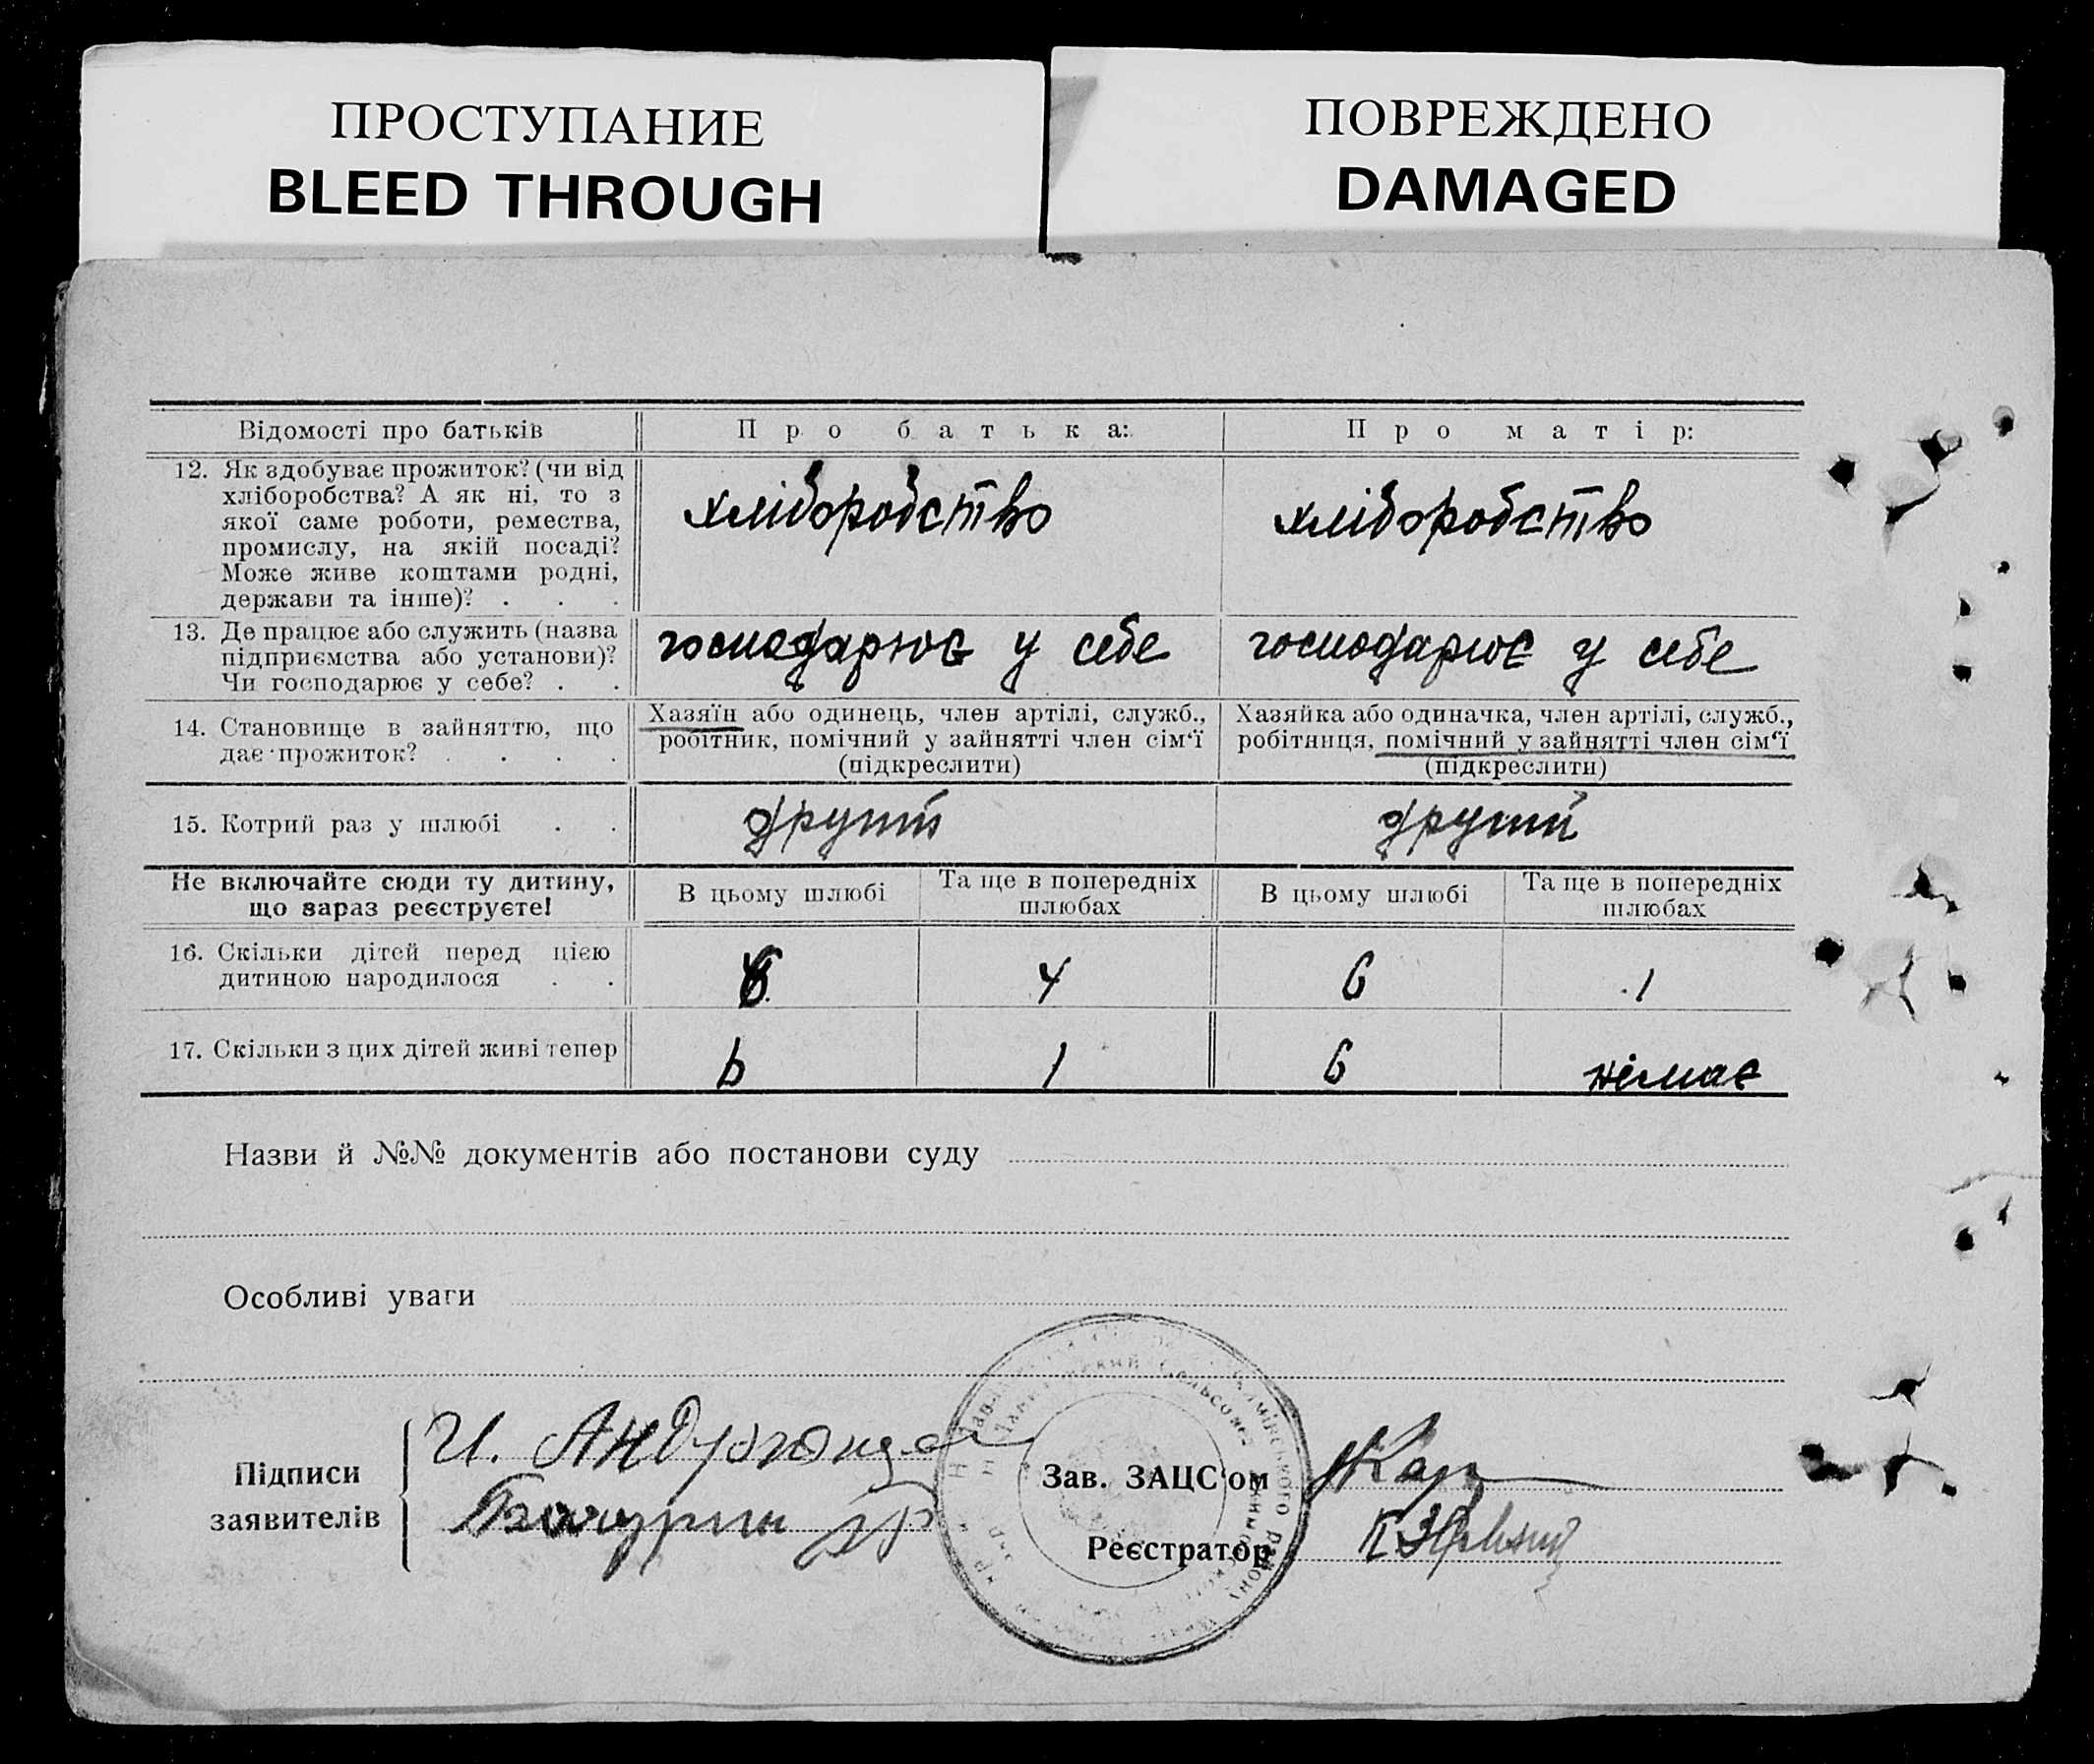 ПРОСТУПАНИЕ
BLEED THROUGH
ПОВРЕЖДЕНО
DAMAGED
Відомості про батьків
Про батька:
Про матір:
12. Як здобуває прожиток? (чи від
хліборобства? А як ні, то з
якої саме роботи, ремества,
промислу, на якій посаді?
Може живе коштами родні,
держави та інше)? . . .
хліборобство
хліборобство
13. Де працює або служить (назва
підприємства або установи)?
Чи господарює у себе? . .
господарює у себе
господарює у себе
14. Становище в зайняттю, що
дає прожиток? . . . .
Хазяїн або одинець, член артілі, служб.,
робітник, помічний у зайнятті член сім'ї
(підкреслити)
Хазяйка або одиначка, член артілі, служб.,
робітниця, помічний у зайнятті член сім'ї
(підкреслити)
15. Котрий раз у шлюбі . .
другий
другий
Не включайте сюди ту дитину,
що зараз реєструєте!
В цьому шлюбі
Та ще в попередніх
шлюбах
В цьому шлюбі
Та ще в попередніх
шлюбах
16. Скільки дітей перед цією
дитиною народилося . .
6
4
6
1
17. Скільки з цих дітей живі тепер
6
1
6
немає
Назви й №№ документів або постанови суду
Особливі уваги
Підписи
заявителів
И.
Зав. ЗАЦС'ом
Реєстратор